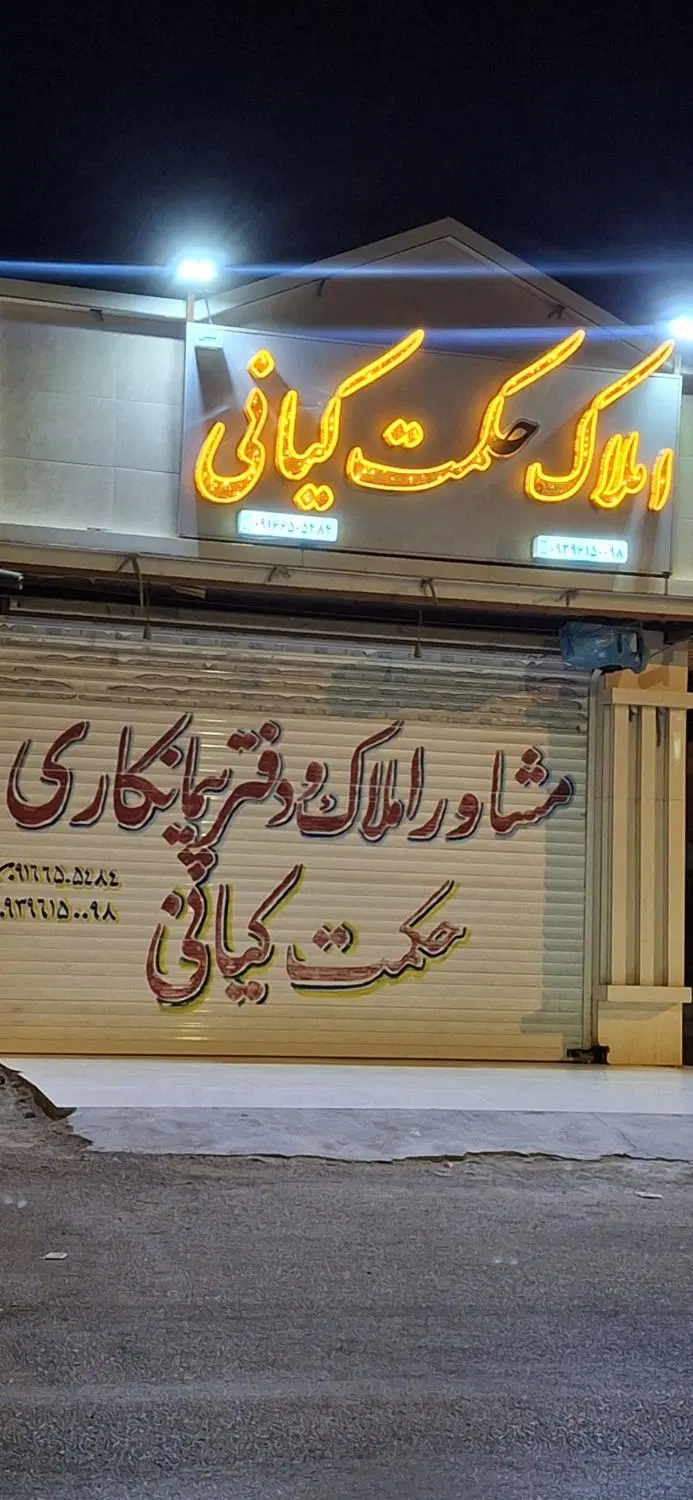 املاک حکمت کیانی
۰۹۳۹۶۱۵۰۰۹۸
۰۹۱۶۶۵۰۵۴۸۴
مشاور املاک و دفتر پیمانکاری
حکمت کیانی
۰۹۱۶۶۵۰۵۴۸۴
۰۹۳۹۶۱۵۰۰۹۸